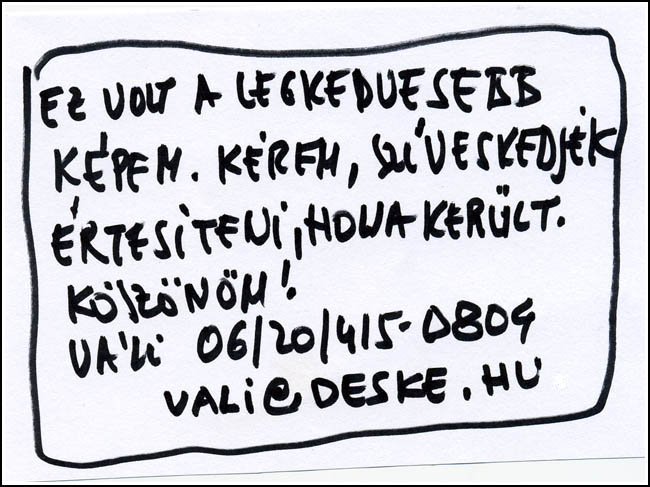 EZ VOLT A LEGKEDVESEBB
KÉPEM. KÉREM, SZÍVESKEDJÉK
ÉRTESÍTENI, HOVA KERÜLT.
KÖSZÖNÖM!
VÁLI 06/20/415-0809
VALI@DESKE.HU